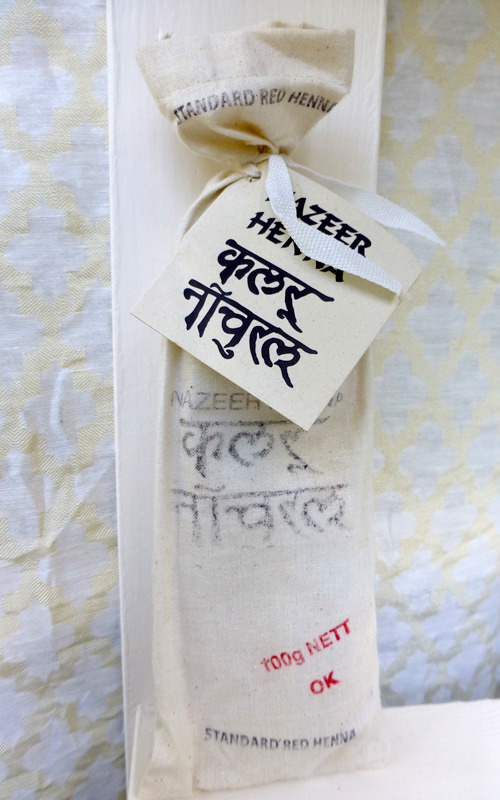 STANDARD RED HENNA
NAZEER
HENNA
कलर
नॉचुरल
NAZEER HENNA
कलर
नॉचुरल
100g NETT
OK
STANDARD RED HENNA